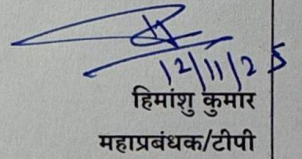 12/11/25
हिमांशु कुमार
महाप्रबंधक/टीपी